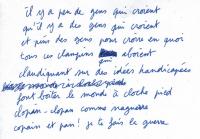 il y a peu de gens qui croient
qu'il y a des gens qui croient
et puis des gens pour croire en quoi
tous ces clampins aboient
qui
claudiquant sur des idées handicapées
font boiter le monde à cloche pied
clopan-clopan comme naguère
copain et pan! je te fais la guerre